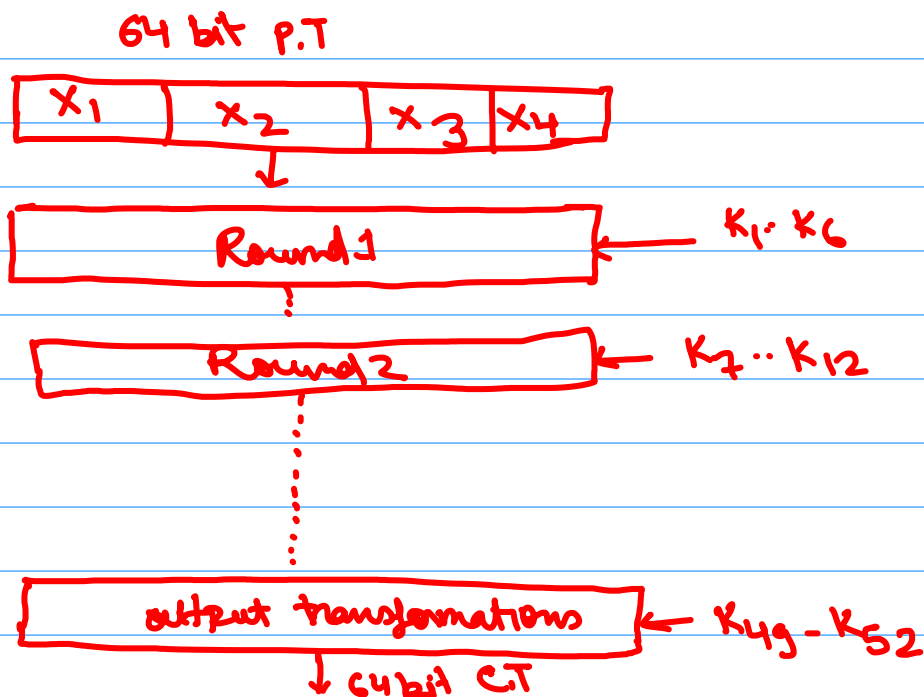 64 bit P.T
X1 X2 X3 X4
Round 1 K1.. K6
Round 2 K7 .. K12
output transformations K49 - K52
64 bit C.T